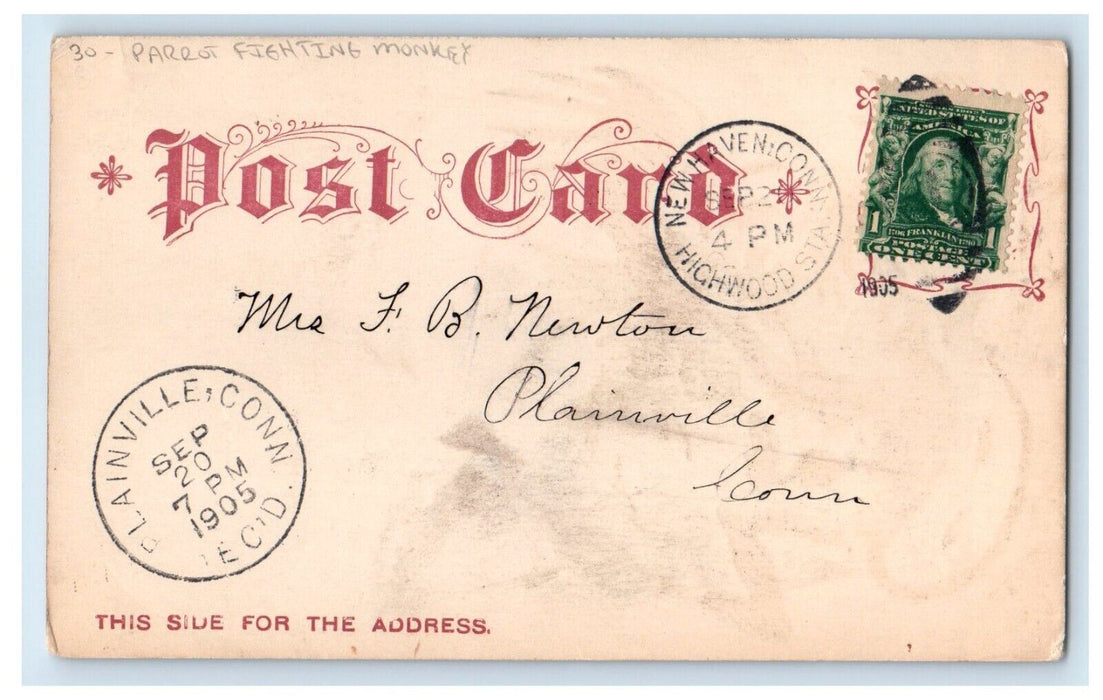 30 - PARROT FIGHTING MONKEY
Post Card
NEW HAVEN, CONN.
SEP 2
4 PM
HIGHWOOD STA.
UNITED STATES OF
AMERICA
1 1
1706 FRANKLIN 1790
POSTAGE
ONE CENT
1905
Mrs F. B. Newton
Plainville
Conn
PLAINVILLE, CONN.
SEP
20
7 PM
1905
REC'D.
THIS SIDE FOR THE ADDRESS.